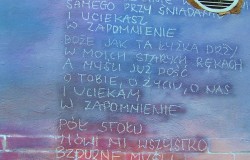 SAMEGO PRZY ŚNIADANIU
I UCIEKASZ
W ZAPOMNIENIE
BOŻE JAK TA ŁYŻKA DRŻY
W MOICH STARYCH RĘKACH
A MYŚLI JUŻ DOŚĆ
O TOBIE, O ŻYCIU, O NAS
I UCIEKAM
W ZAPOMNIENIE
PÓŁ STOŁU
MÓWI MI WSZYSTKO
BZDURNE MYŚLI